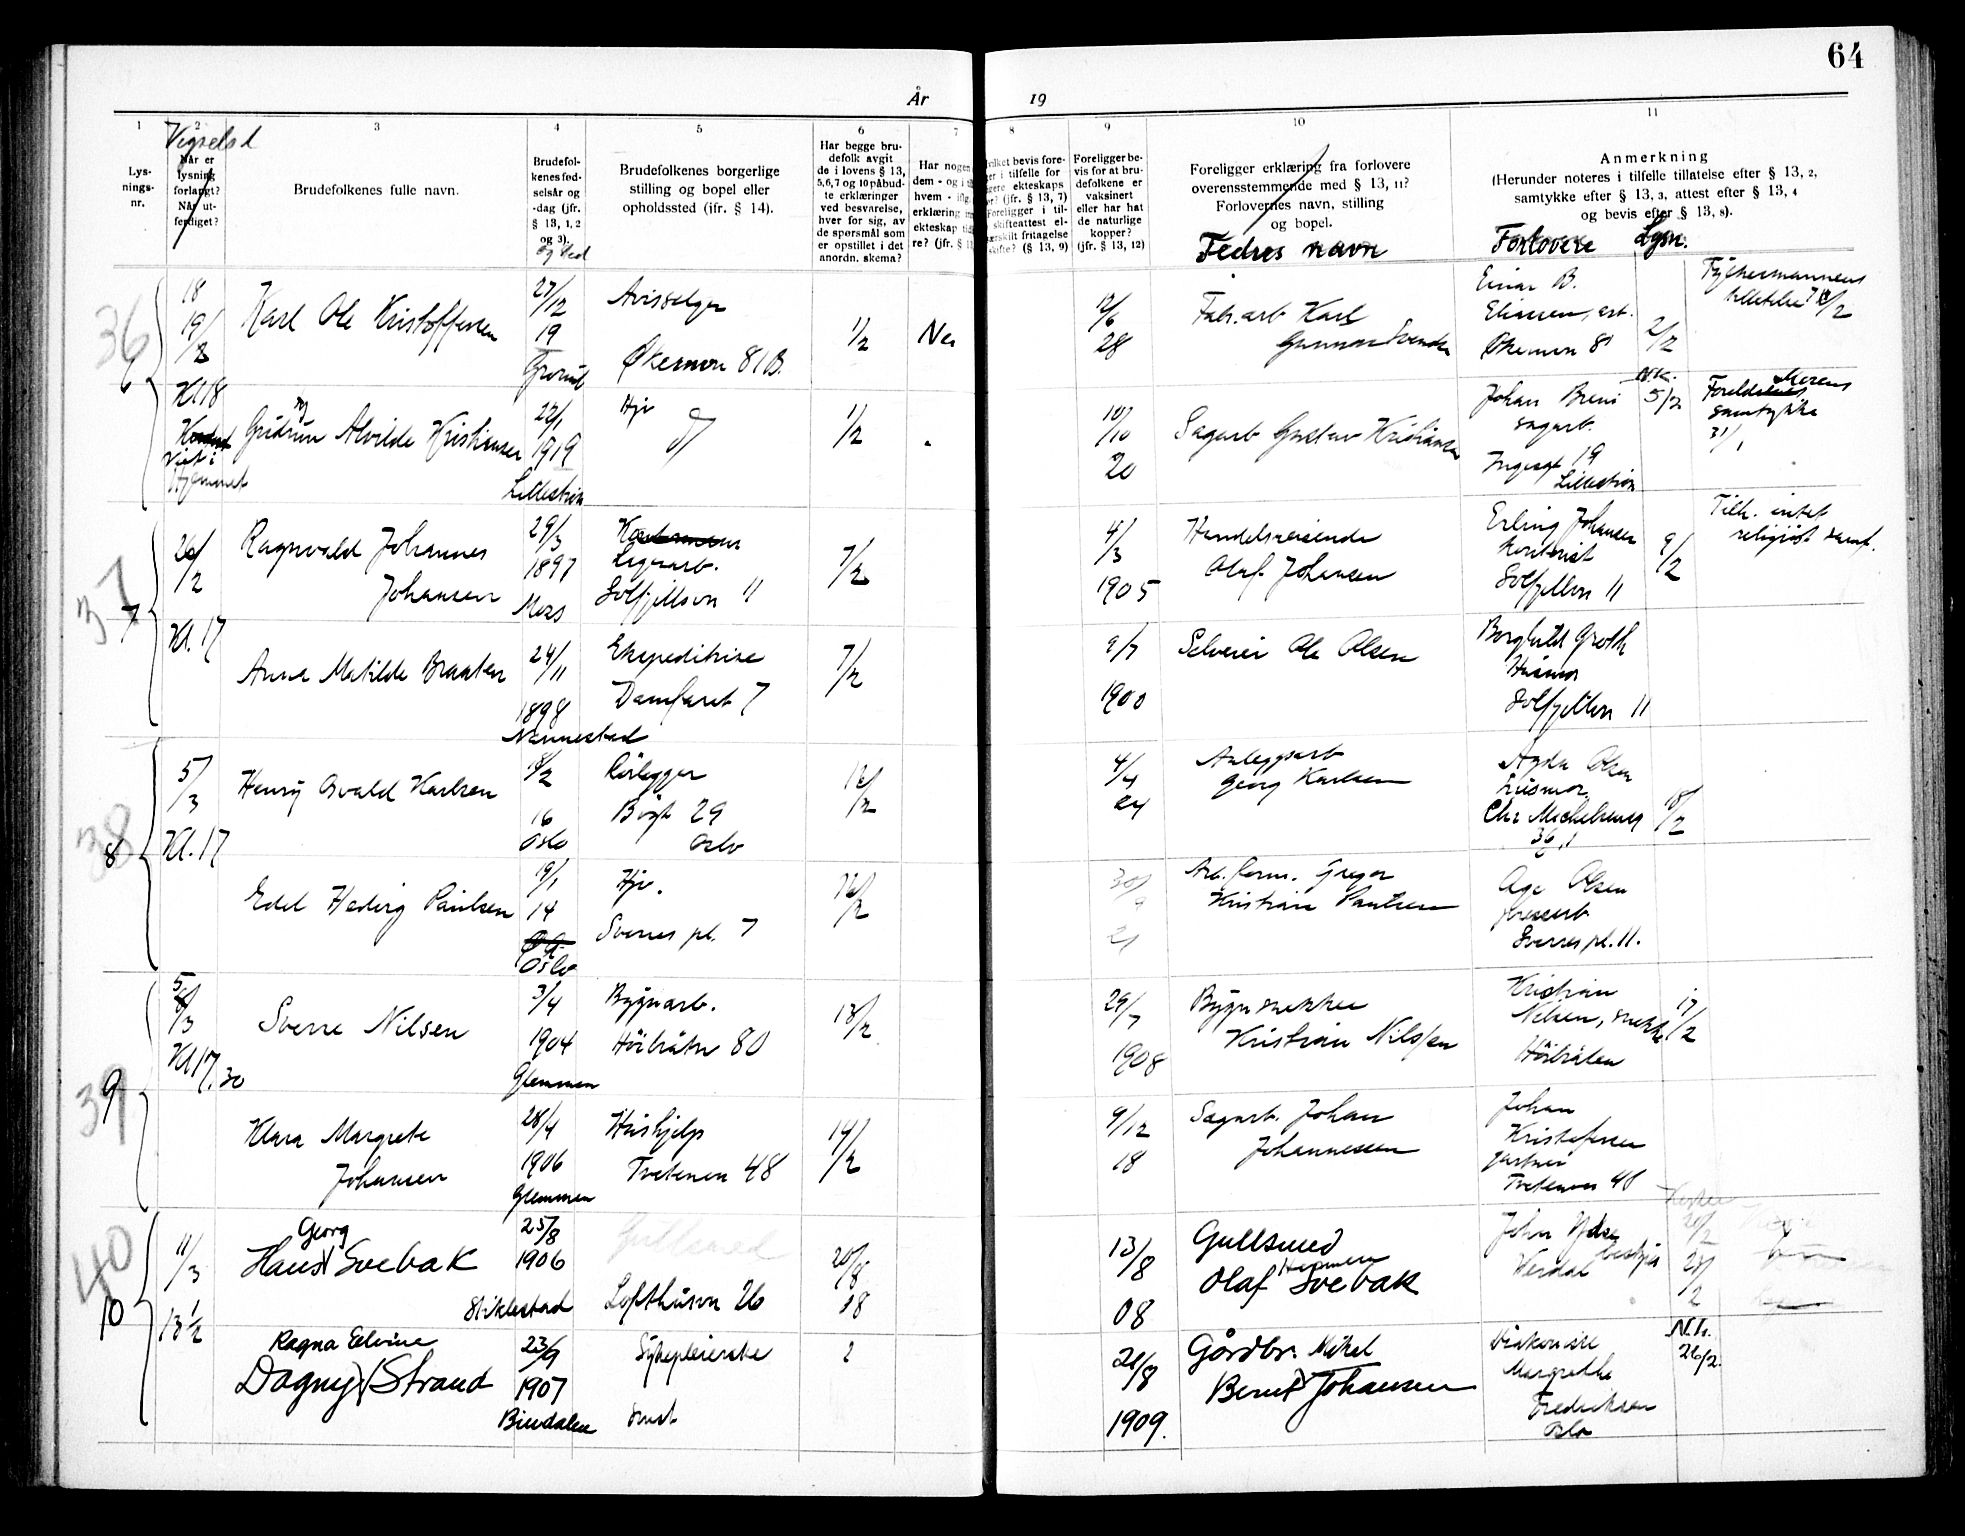 64
År
19
1
2
3
4
5
6
7
8
9
10
11
Vigselsd
Lys-
nings-
nr.
Når er
lysning
forlangt?
Når ut-
ferdiget?
Brudefolkenes fulle navn.
Brudefol-
kenes fød-
selsår og
-dag (jfr.
§ 13, 1, 2
og 3).
og sted
Brudefolkenes borgerlige
stilling og bopel eller
opholdssted (jfr. § 14).
Har begge bru-
defolk avgit
de i lovens § 13,
5,6,7 og 10 påbud-
te erklæringer
ved besvarelse,
hver for sig, av
de spørsmål som
er opstillet i det
anordn. skema?
Har nogen
dem - og i
hvem - iflg.
erklæring
ekteskap
re? (jfr. §
Foreligger be-
vis for at bru-
defolkene er
vaksinert
eller har hat
de naturlige
kopper?
(jfr. § 13, 12)
Foreligger erklæring fra forlovere
overensstemmende med § 13, 11?
Forlovernes navn, stilling
og bopel.
Fedres navn
Anmerkning
(Herunder noteres i tilfelle tillatelse efter § 13, 2,
samtykke efter § 13, 3, attest efter § 13, 4
og bevis efter § 13, 8).
Forlovere Lysn.
36
6
18
19/2
Kl 18
Viet i
Hjemmet
Karl Ole Kristoffersen
27/12
19
Grorud
Avisselger
Økernvn 81 B.
1/2
Nei
12/6
28
Fabr.arb Karl
Gunnar Svendsen
Einar B.
Eliassen, arb.
Økernvn 81
2/2
tillatelse
Gudrun Alvilde Kristiansen
22/1
1919
Lillestrøm
Hjv
1/2
10/10
20
Sagarb Gustav Kristiansen
Johan
sagarb.
19
Lillestrøm
N.k.
5/2
Morens
samtykke
31/1
37
7
26/2
Kl. 17
Ragnvald Johannes
Johansen
29/3
1897
Moss
Lagerarb.
Solfjellsvn 11
7/2
4/3
1905
Handelsreisende
Olaf Johansen
Erling Johansen
kontorist
Solfjellvn 11
9/2
Tilh. intet
religiøst samf.
Anna Matilde Braaten
24/11
1898
Nannestad
Ekspeditrise
Damfaret 7
7/2
9/7
1900
Selveier Ole Olsen
Borghild Groth
Husmor
Solfjellvn 11
38
8
5/3
Kl. 17
Henry Osvald Karlsen
8/2
16
Oslo
Rørlegger
Bøgt 29
Oslo
12/2
4/4
24
Anleggsarb
Georg Karlsen
Agda Olsen
husmor
Chr Michelsensg
36
18/2
Edel Hedvig Paulsen
19/1
14
Oslo
Hjv.
Sverres pl. 7
12/2
30/9
21
Arb. form. Gregor
Kristian Paulsen
Age Olsen
Sverres pl. 11.
39
9
5/3
Kl 17.30
Sverre Nilsen
3/4
1904
Glemmen
Bygnarb.
Høibråtn 80
13/2
29/7
1908
Bygn snekker
Kristian Nilssen
Kristian
Nilsen, snekk
Høibråten
17/2
Klara Margrete
Johansen
28/4
1906
Glemmen
Hushjelp
Tvetenvn 48
14/2
9/12
18
Sagarb. Johan
Johannessen
Johan
Kristofersen
gartner
Tvetenvn 48
40
10
11/3
13 1/2
Georg
Hans Svebak
25/8
1906
Stiklestad
Gullsmed
Lofthusvn 26
20/8
13/8
08
Gullsmed
Olaf Svebak
Verdal
20/2
Ragna Edvine
Dagny Strand
23/9
1907
Bindalen
Sykepleierske
2
21/8
1909.
Gårdbr. Mikal
Bernt Johansen
Diakonisse
Margrethe
Fredriksen
Oslo
N.k.
26/2.